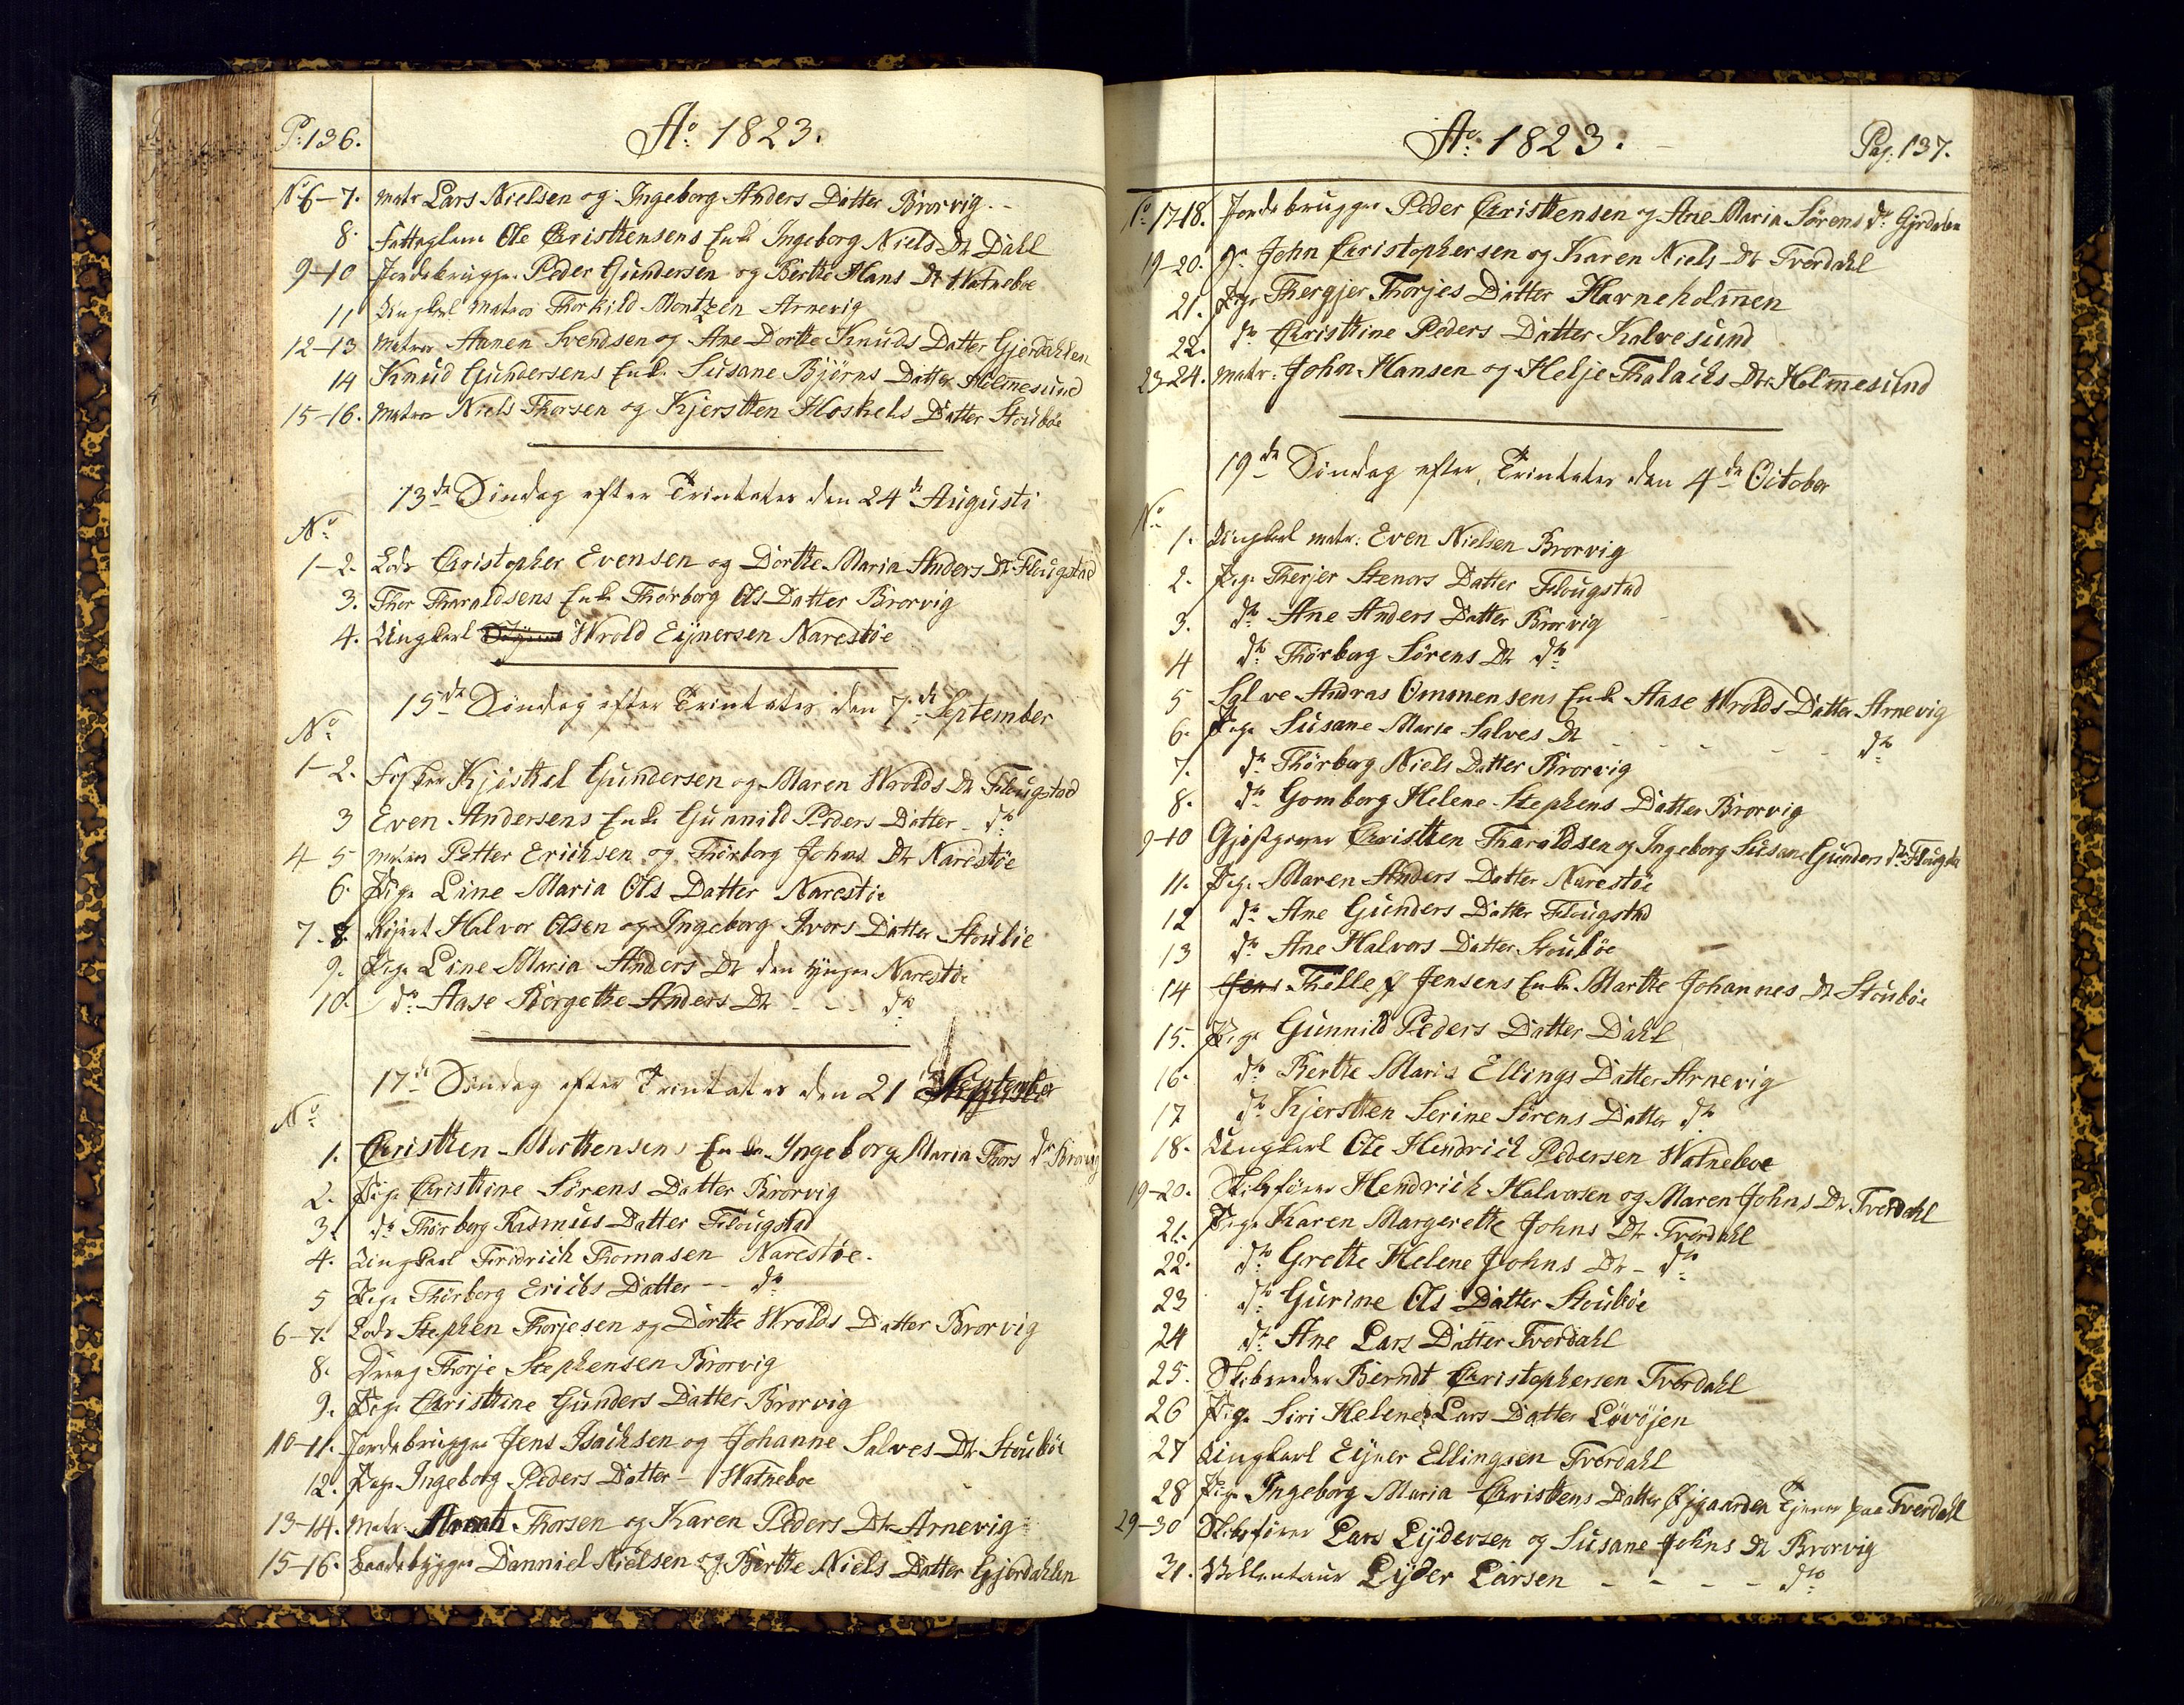 P: 136.
Ao: 1823.
No 6-7. matr Lars Nielsen og Ingeborg Anders Datter Brorvig. -
8. Fatteglem Ole Christhensens Enke Ingeborg Niels Dr Dahl
9-10 Jordebrugger Peder Gundersen og Berthe Hans Dr Watneboe
11 Ungkarl matros Thorkild Montzen Arnevig
12-13 Matros Aanen Svendsen og Ane Dorthe Knuds Datter Gjerdahlen
14 Knud Gundersens Enke Susane Bjørns Datter Holmesund
15-16. Matros Niels Thorsen og Kjersthen Hoskels Datter Stoubøe
13de Søndag efter Trinitates den 24de Augusti
No
1-2. Lods Christopher Evensen og Dorthe Maria Anders Dr Flougstad
3. Thor Tharaldsens Enke Thørborg Ols Datter Brorvig
4. Ungkarl Wrold Eynersen Narestøe
15de Søndag efter Trinitates den 7de September
No
1-2. Fisker Kjisthel Gundersen og Maren Wrolds Dr Flougstad
3 Even Andersens Enke Gunnild Peders Datter - do
4-5 matros Petter Erichsen og Thørborg Johns Dr Narestøe
6. Pige Line Maria Ols Datter Narestøe
7-8. Halvor Olsen og Ingeborg Ivors Datter Stoubøe
9. Pige Line Maria Anders Dr den yngre Narestøe
10. do Aase Børgethe Anders Dr - - - do
17de Søndag efter Trinitates den 21 September
No
1. Christhen Morthensens Enke Ingeborg Maria Thors dr Brorvig
2. Pige Christhine Sørens Datter Brorvig
3. do Thørborg Rasmus Datter Flougstad
4. Ungkarl Fridrich Thomasen Narestøe.
5 Pige Thørborg Erichs Datter - - do
6-7. Lods Stephen Thorjesen og Dorthe Wrolds Datter Brorvig
8. Dreng Thorje Stephensen Brorvig
9. Pige Christhine Gunders Datter Brorvig
10-11. Jordebrugger Jens Isachsen og Johanne Salves Dr Stoubøe
12. Pige Ingeborg Peders Datter - Watneboe
13-14. Matr: Thorsen og Karen Peders Dr Arnevig
15-16. Baadebygger Danniel Nielsen og Berthe Niels Datter Gjerdahlen
Ao: 1823.
Pag: 137.
No: 17-18. Jordebrugger Peder Christhensen og Ane Maria Sørens dr Gjerdalen
19-20. do John Christophersen og Karen Niels Dr Tverdahl
21. Pige Thergjer Thorjes Datter Havneholmen
22. do Christhine Peders Datter Kalvesund
23-24. matr: John Hansen og Helje Thalachs Dr Holmesund
19de Søndag efter Trinitates den 4de October
No
1. Ungkarl matr: Even Nielsen Brorvig
2. Pige Therjer Stenors Datter Flougstad
3. do Ane Anders Datter Brorvig
4 do Thørborg Sørens Dr do
5 Salve Andras Ommensens Enke Aase Wrolds Datter Arnevig
6. Pige Susane Marie Salves Dr - - - - - do
7. do Thørborg Niels Datter Brorvig
8. do Gomborg Helene Stephens Datter Brorvig
9-10 Gjæstgiver Christhen Tharaldsen og Ingeborg Susane Gunders dr Flougsta
11. Pige Maren Anders Datter Narestøe
12 do Ane Gunders Datter Flougstad
13 do Ane Halvors Datter Stoubøe
14 Jens Thellef Jensens Enke Marthe Johannes Dr Stoubøe
15. Pige Gunnild Peders Datter Dahl
16. do Berthe Maria Ellings Datter Arnevig
17 do Kjersthen Serine Sørens Datter do
18. Ungkarl Ole Hendrich Pedersen Watneboe
19-20. Skibsfører Hendrich Halvorsen og Maren Johns Dr Tverdahl
21. Pige Karen Margerethe Johns Dr Tverdahl
22. do Grethe Helene Johns Dr - do
23 do Gurine Ols Datter Stoubøe
24 do Ane Lars Datter Tverdahl
25. Skibsreder Berndt Christophersen Tverdahl
26 Pige Siri Helene Lars Datter Løvøjen
27 Ungkarl Eyner Ellingsen Tverdahl
28 Pige Ingeborg Maria Christhens Datter Øjgaarden tjener paa Tverdahl
29-30 Skibsfører Lars Lydersen og Susane Johns Dr Brorvig
31. Lyder Larsen - - - - do